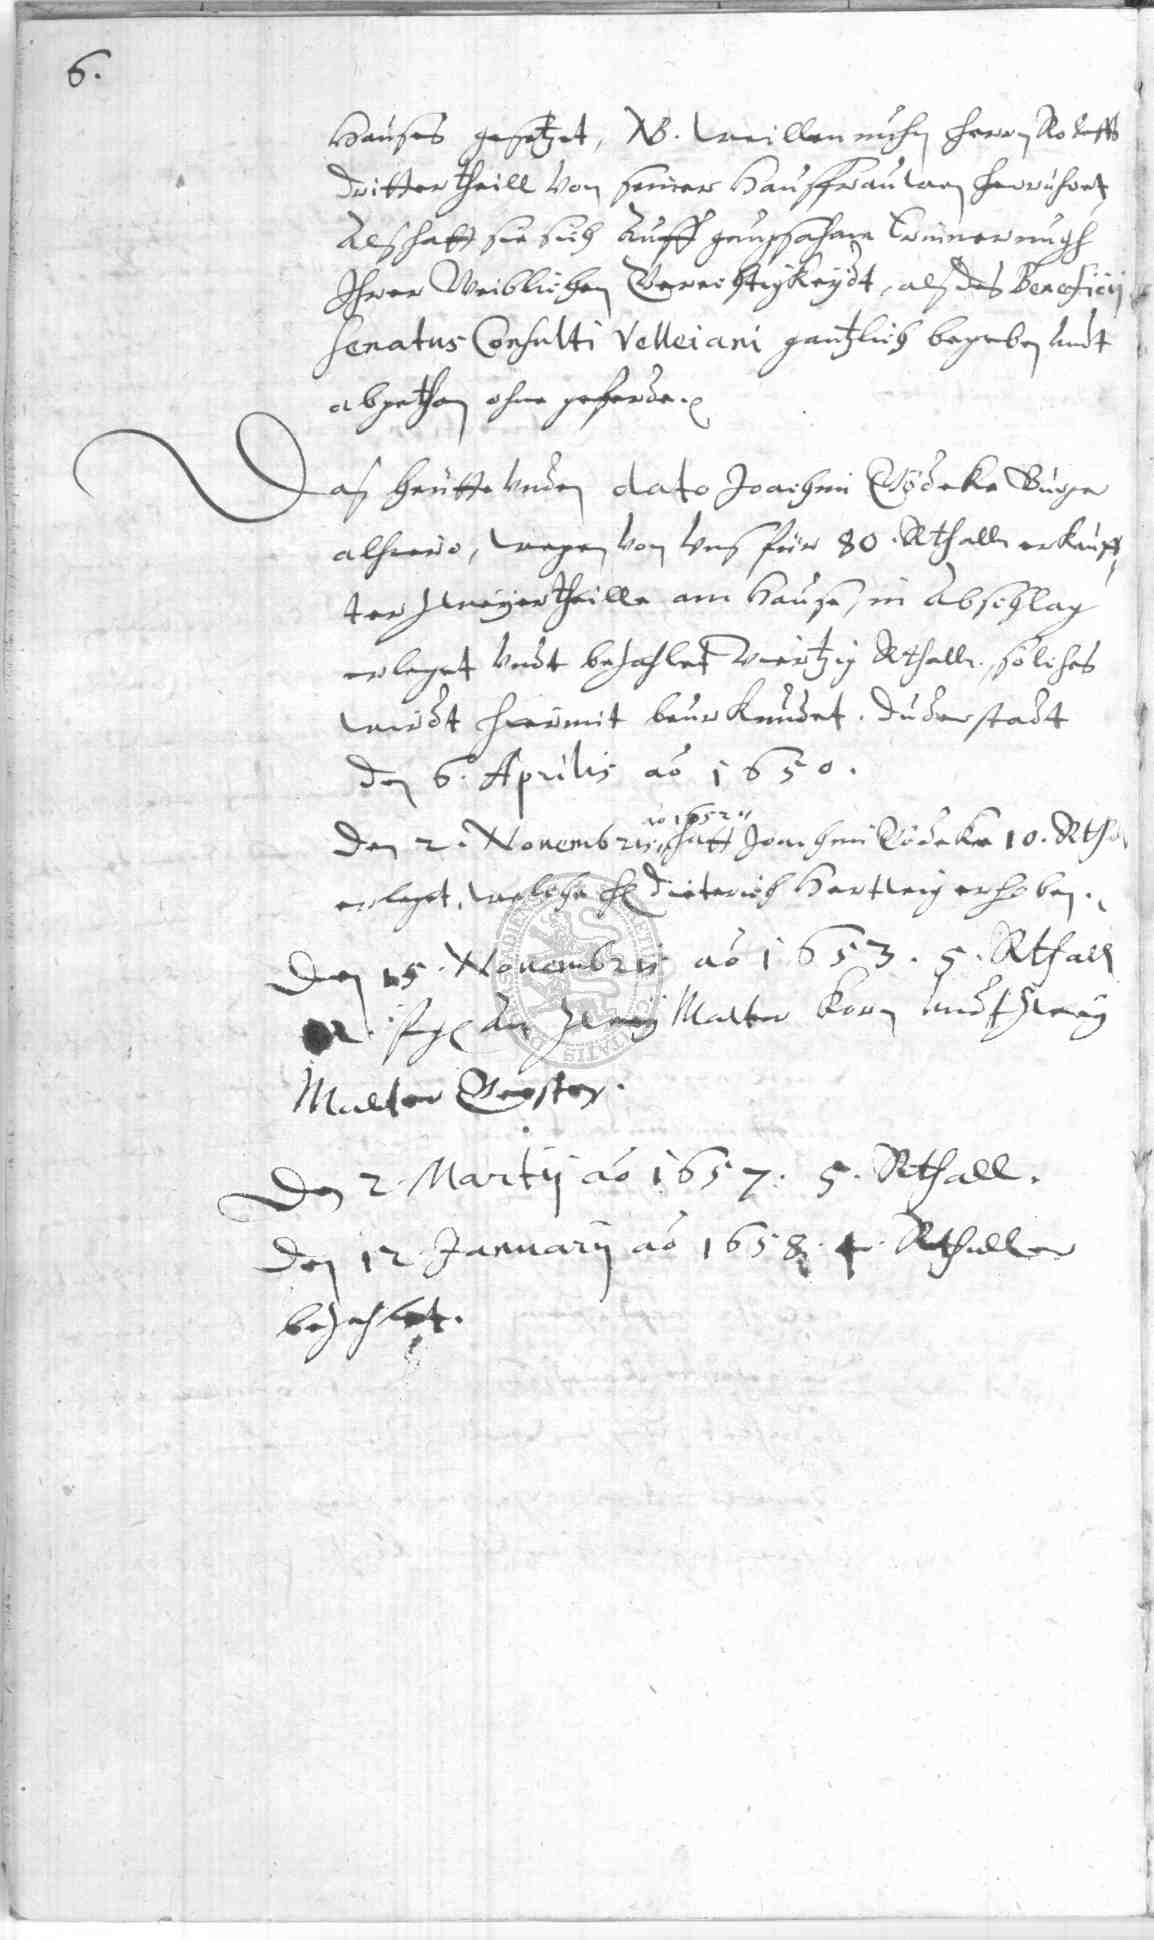 6.
Hauses gesetzet, NB. weillen nuhn Herrn Roleffs
dritter theill von seiner Hausfrauwen herrühret
Als hatt sie sich Auff gnugsahme Erinnerungh
Ihrer Weiblichen Gerechtigkeydt, als des Beneficij
Senatus Consulti Velleiani gantzlich begeben undt
abgethan ohne geferde.
Das heutte unden dato Joachim Gödeke Burger
alhiero, wegen von uns für 80. Rthall. erkauff
ter zweyer theille am Hause, in Abschlag
erleget undt bezahlet viertzig Rthall. solches
wirdt hiermit beurkundet. Duderstadt
den 6. Aprilis ao 1650.
ao 1652
Den 2. Novembris hatt Joachim Gödeke 10. Rtha
erlegt, welche H. Dieterich Hartwig erhoben.
Den 15. Novembris ao 1653. 5. Rthall
an zweij Malter Korn undt zweij
Malter Gersten.
Den 2. Martij ao 1657. 5. Rthall.
Den 12. Januarij ao 1658. 4. Rthaller
bezahlet.